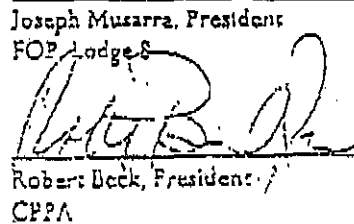 Joseph Musarra, President
FOP Lodge 8
Robert Beck, President
CPPA